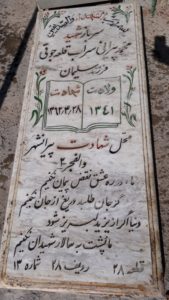 سرباز شهید
حجت پیرانی سراب قلعه جوقی
فرزند سلیمان
ولادت شهادت
۱۳۴۱ ۱۳۶۲/۳/۲۸
محل شهادت پیرانشهر
والفجر ۲
ما در ره عشق نقض پیمان نکنیم
گر جان طلبد دریغ از جان نکنیم
دنیا اگر از یزید لبریز شود
ما پشت به سالار شهیدان نکنیم
قطعه ۲۸ ردیف ۲۸ شماره ۱۳